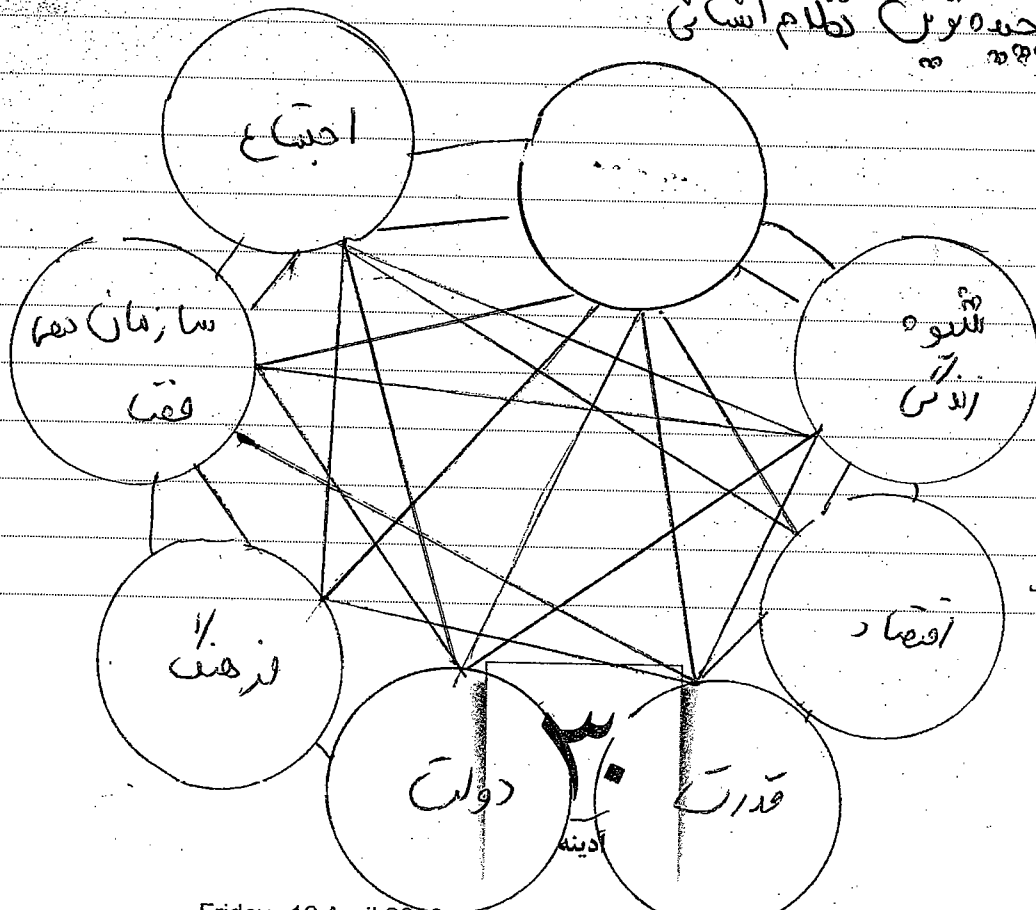 پیچیده‌ترین نظام انسانی
اجتماع
.....
سازمان دهی
فضا
شیوه
زندگی
فرهنگ
اقتصاد
دولت
قدرت
۳۰
آدینه
Friday
April